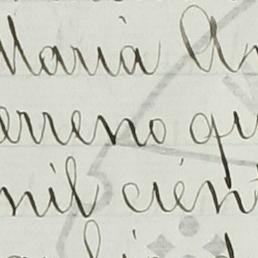 Maria An
erreno qu
mil cien